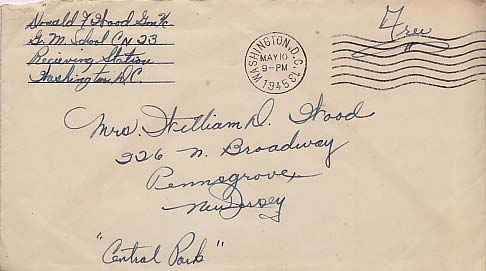 Donald F Wood GM3/c
G. M. School CN 23
Recieving Station
Washington D.C.
WASHINGTON, D.C. 13
MAY 10
9-PM
1945
Free
Mrs. William D. Wood
226 N. Broadway
Pennsgrove,
New Jersey
"Central Park"